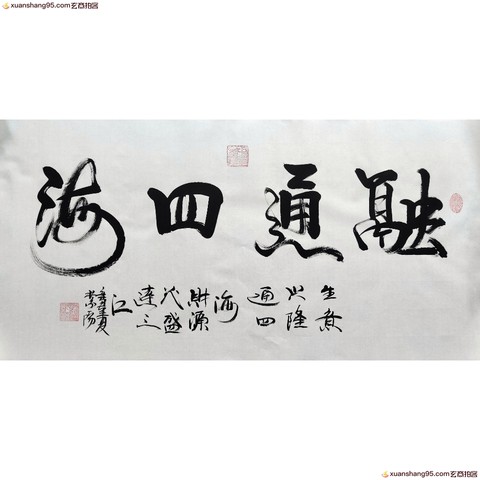 xuanshang95.com
融通四海
生意
兴隆
通四
海
财源
茂盛
達三
江
xuanshang95.com